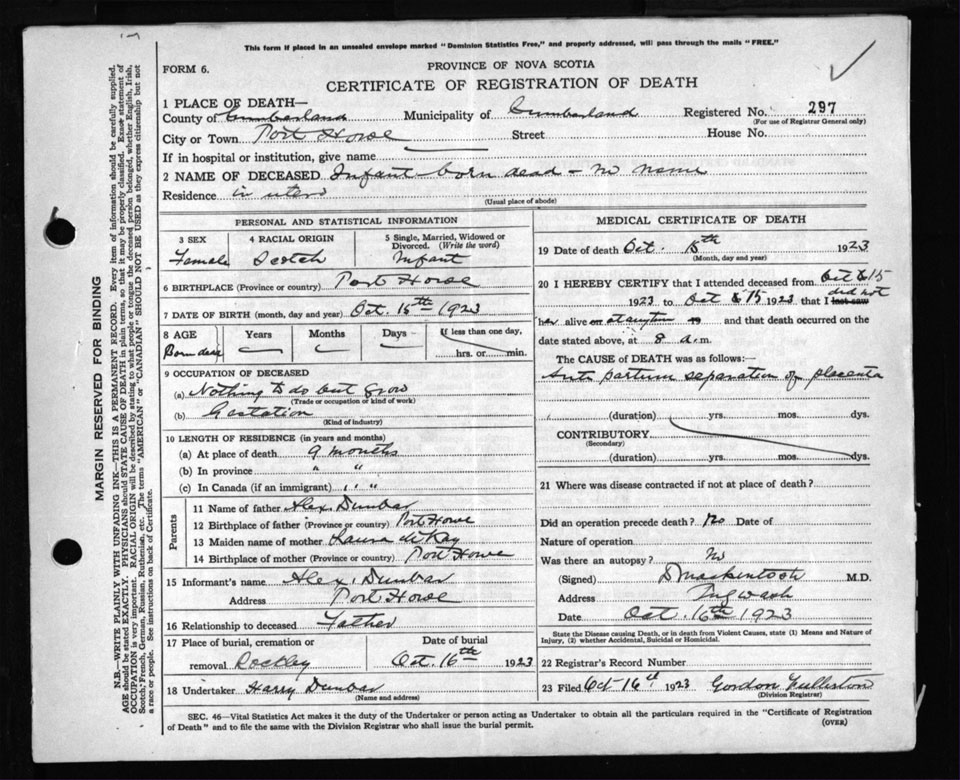 This form if placed in an unsealed envelope marked "Dominion Statistics Free," and properly addressed, will pass through the mails "FREE."
FORM 6.
PROVINCE OF NOVA SCOTIA
CERTIFICATE OF REGISTRATION OF DEATH
1 PLACE OF DEATH—
County of Cumberland Municipality of Cumberland Registered No. 297
(For use of Registrar General only)
City or Town Port Howe Street House No.
If in hospital or institution, give name
2 NAME OF DECEASED Infant born dead - no name
Residence in utero
(Usual place of abode)
PERSONAL AND STATISTICAL INFORMATION
3 SEX 4 RACIAL ORIGIN 5 Single, Married, Widowed or Divorced. (Write the word)
Female Scotch Infant
6 BIRTHPLACE (Province or country) Port Howe
7 DATE OF BIRTH (month, day and year) Oct. 15th 1923
8 AGE Years Months Days If less than one day,
Born dead hrs. or min.
9 OCCUPATION OF DECEASED
(a) Nothing to do but grow
(Trade or occupation or kind of work)
(b) Gestation
(Kind of industry)
10 LENGTH OF RESIDENCE (in years and months)
(a) At place of death 9 months
(b) In province " "
(c) In Canada (if an immigrant) " "
Parents
11 Name of father Alex. Dunbar
12 Birthplace of father (Province or country) Port Howe
13 Maiden name of mother Laura
14 Birthplace of mother (Province or country) Port Howe
15 Informant's name Alex. Dunbar
Address Port Howe
16 Relationship to deceased Father
17 Place of burial, cremation or Date of burial
removal Rockley Oct. 16th 1923
18 Undertaker Harry Dunbar
(Name and address)
MEDICAL CERTIFICATE OF DEATH
19 Date of death Oct. 15th 1923
(Month, day and year)
20 I HEREBY CERTIFY that I attended deceased from Oct 15
1923 to Oct 15 1923 that I last saw did not
her alive on at any time and that death occurred on the
date stated above, at 8 a.m.
The CAUSE of DEATH was as follows:—
Ante partum separation of placenta
(duration) yrs. mos. dys.
CONTRIBUTORY
(Secondary)
(duration) yrs. mos. dys.
21 Where was disease contracted if not at place of death?
Did an operation precede death? No Date of
Nature of operation
Was there an autopsy? No
(Signed) D Mackintosh M.D.
Address Pugwash
Date Oct. 16th 1923
State the Disease causing Death, or in death from Violent Causes, state (1) Means and Nature of
Injury, (2) whether Accidental, Suicidal or Homicidal.
22 Registrar's Record Number
23 Filed Oct 16th 1923 Gordon Fullerton
(Division Registrar)
SEC. 46—Vital Statistics Act makes it the duty of the Undertaker or person acting as Undertaker to obtain all the particulars required in the "Certificate of Registration
of Death" and to file the same with the Division Registrar who shall issue the burial permit.
(OVER)
MARGIN RESERVED FOR BINDING
N.B.—WRITE PLAINLY WITH UNFADING INK—THIS IS A PERMANENT RECORD. Every item of information should be carefully supplied.
AGE should be stated EXACTLY. PHYSICIANS should STATE CAUSE OF DEATH in plain terms, so that it may be properly classified. Exact statement of
OCCUPATION is very important. RACIAL ORIGIN will be described by stating to what people or tongue the deceased person belonged, whether English, Irish,
Scotch, French, German, Russian, Ruthenian, etc. The terms "AMERICAN" or "CANADIAN" SHOULD NOT BE USED as they express citizenship but not
a race or people. See instructions on back of Certificate.